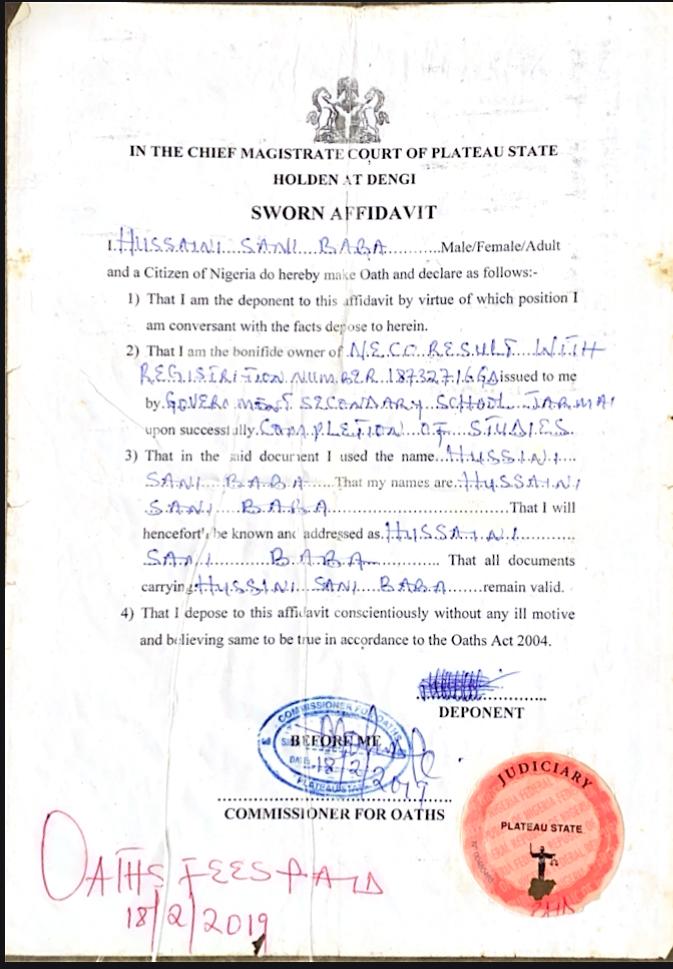 IN THE CHIEF MAGISTRATE COURT OF PLATEAU STATE
HOLDEN AT DENGI
SWORN AFFIDAVIT
I. HUSSAINI SANI BABA..........Male/Female/Adult
and a Citizen of Nigeria do hereby make Oath and declare as follows:-
1) That I am the deponent to this affidavit by virtue of which position I
am conversant with the facts depose to herein.
2) That I am the bonifide owner of N.E.C.O RESULT WITH
REGISTRITION NUMBER issued to me
by. GOVERNMENT SECONDARY SCHOOL JARMAI
upon successfully. COMPLETION OF STUDIES.
3) That in the said document I used the name... HUSSINI
SANI BABA..... That my names are. HUSSAINI
SANI BABA.................... That I will
henceforth be known and addressed as. HUSSAINI
SANI BABA.............. That all documents
carrying HUSSINI SANI BABA.......remain valid.
4) That I depose to this affidavit conscientiously without any ill motive
and believing same to be true in accordance to the Oaths Act 2004.
DEPONENT
COMMISSIONER FOR OATHS
BEFORE ME
DATE 18/2/2019
PLATEAU STATE
COMMISSIONER FOR OATHS
JUDICIARY
PLATEAU STATE
OATHS FEES PAID
18/2/2019